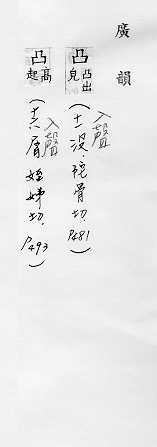 廣韻
凸 凸出皃 (入聲 十一沒.陀骨切. P481)
凸 高起 (入聲 十六屑 姪姊切. P493)